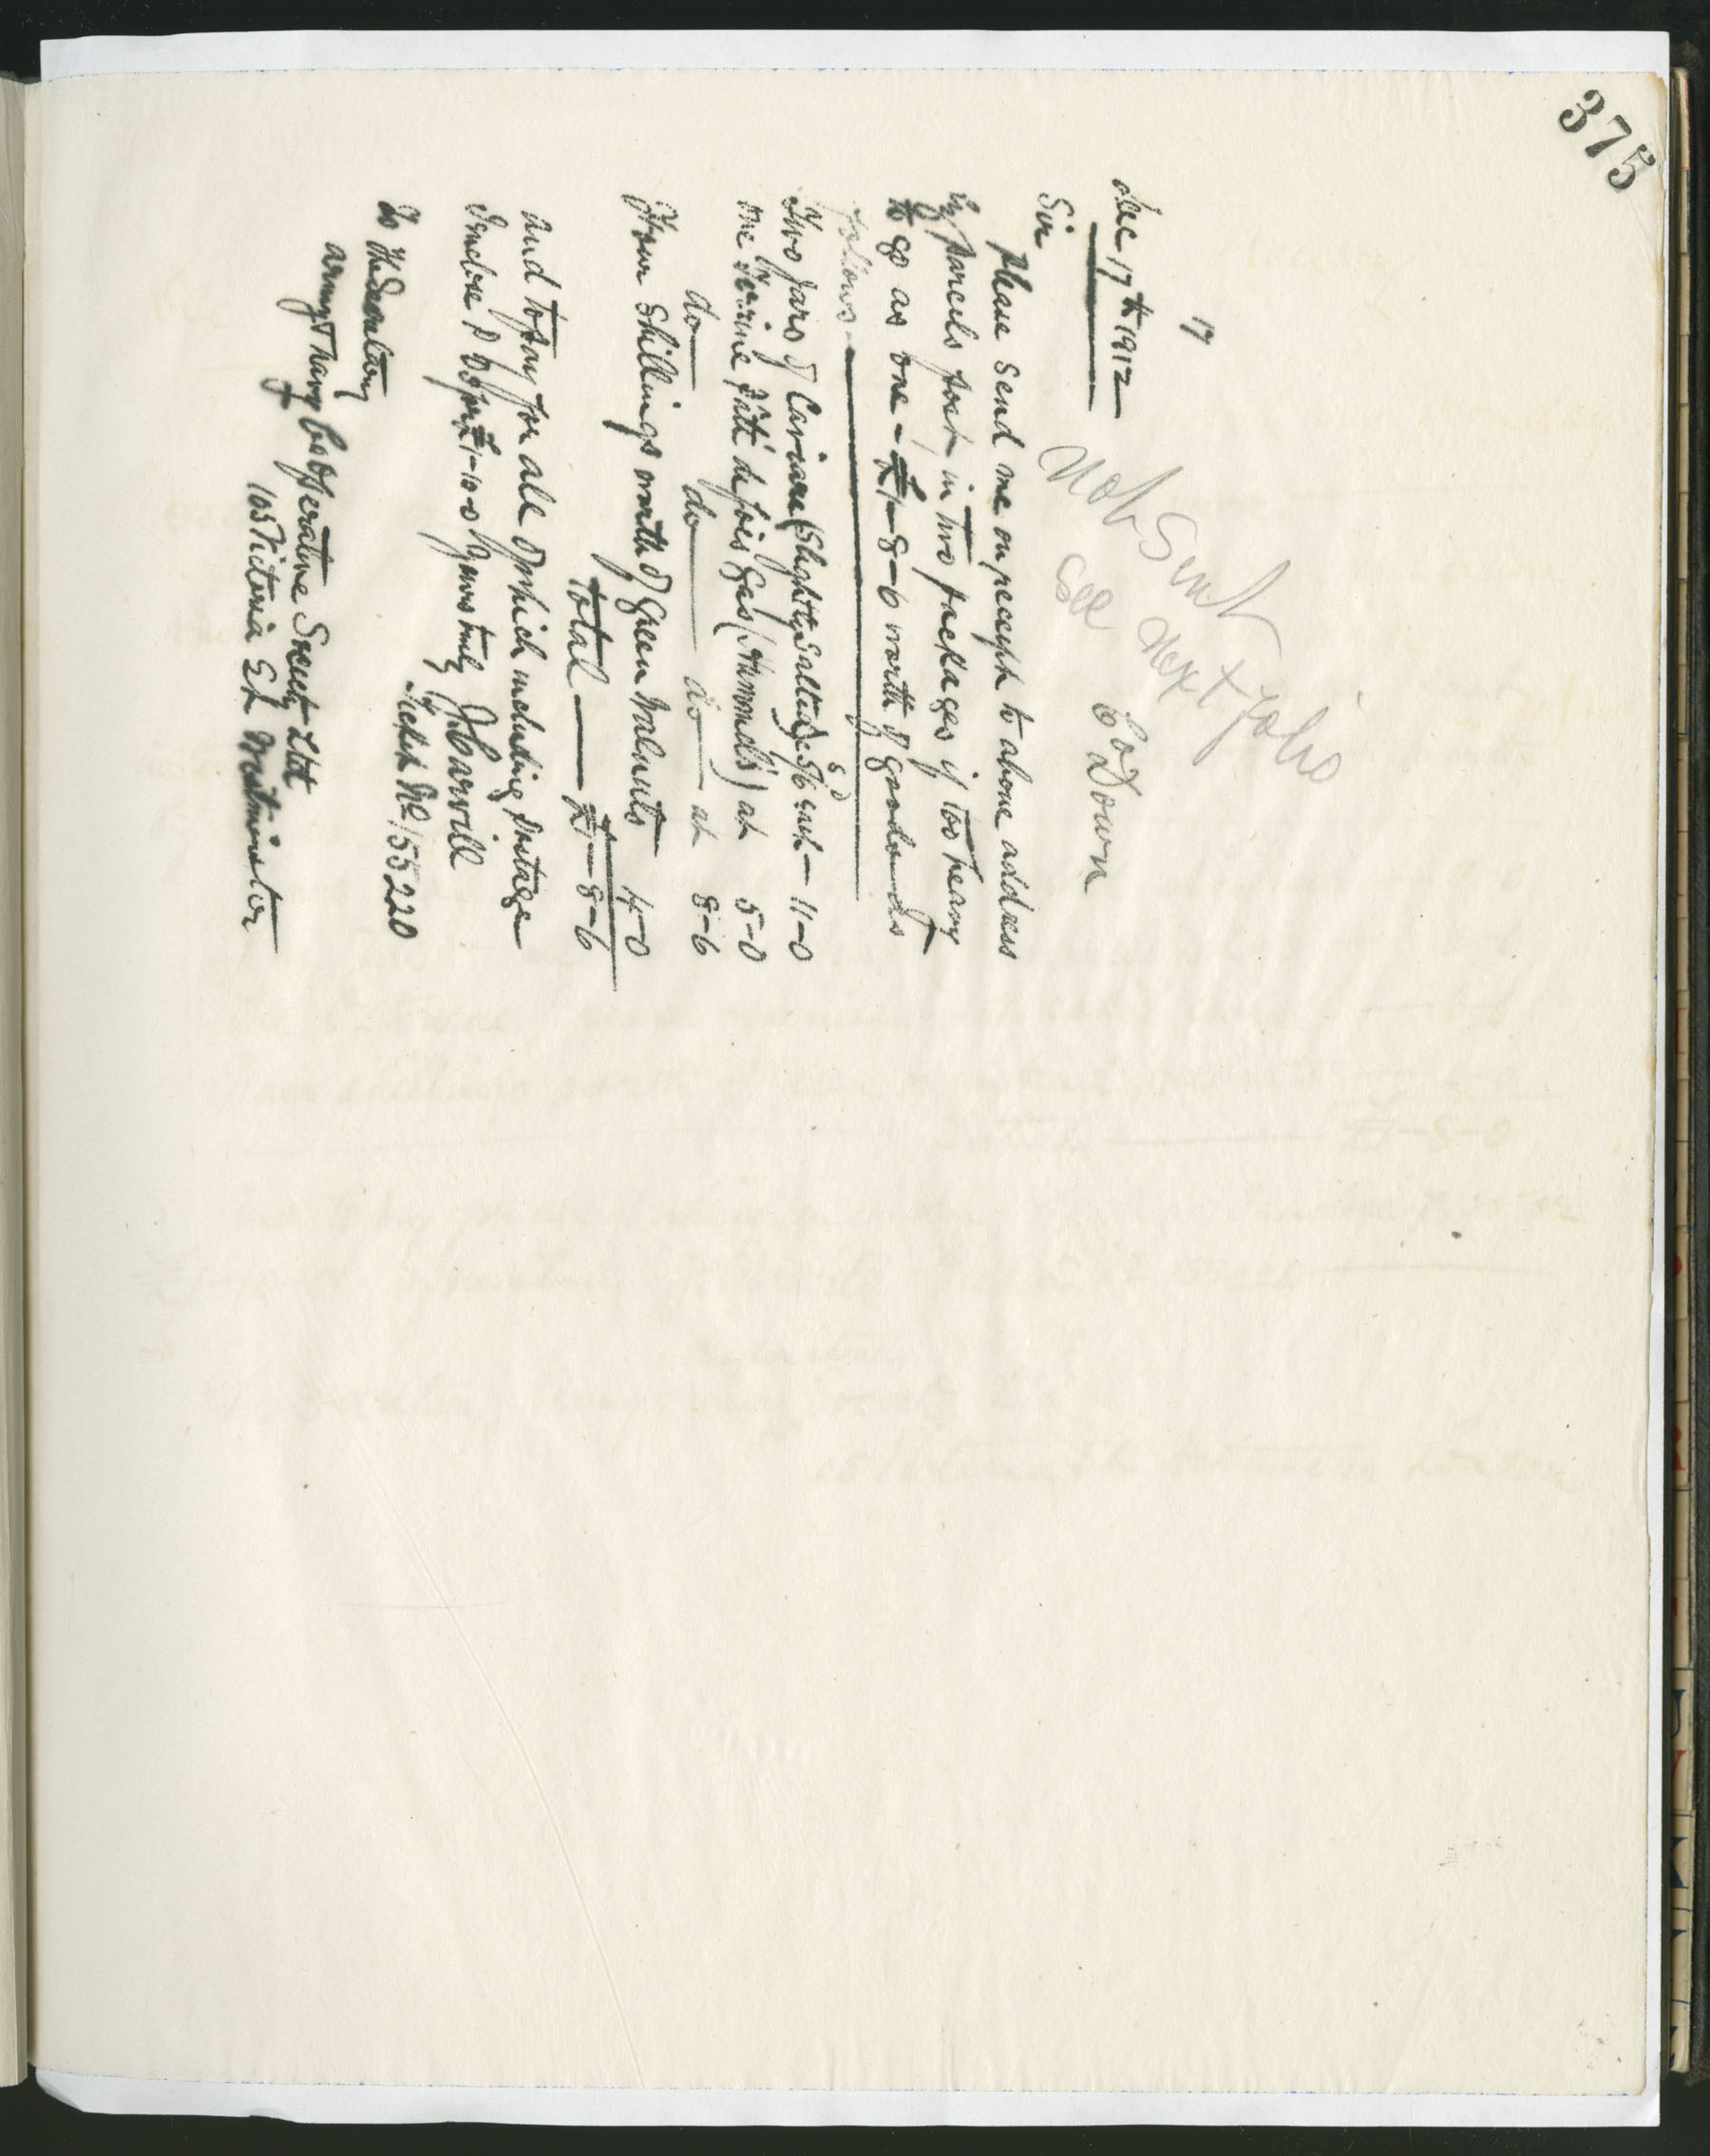 375
17
Dec 17th 1912
Co Down
Not Sent
See next folio
Sir
Please send me on receipt to above address
by parcels post in two packages if too heavy
to go as one - £1-8-6 worth of goods as
follows.
Two jars of Caviare (Slightly Salted) 5s/6d each — 11-0
One Terrine Pâté de foies Gras (Hummel's) at 5-0
do do do at 8-6
Four Shillings worth of Green Walnuts 4-0
Total — £1-8-6
And to pay for all of which including postage
I enclose P.O. for £1-10-0 Yours truly
Ticket No/55220
To The Secretary
Army & Navy Co Operative Society Ltd
105 Victoria St Westminster